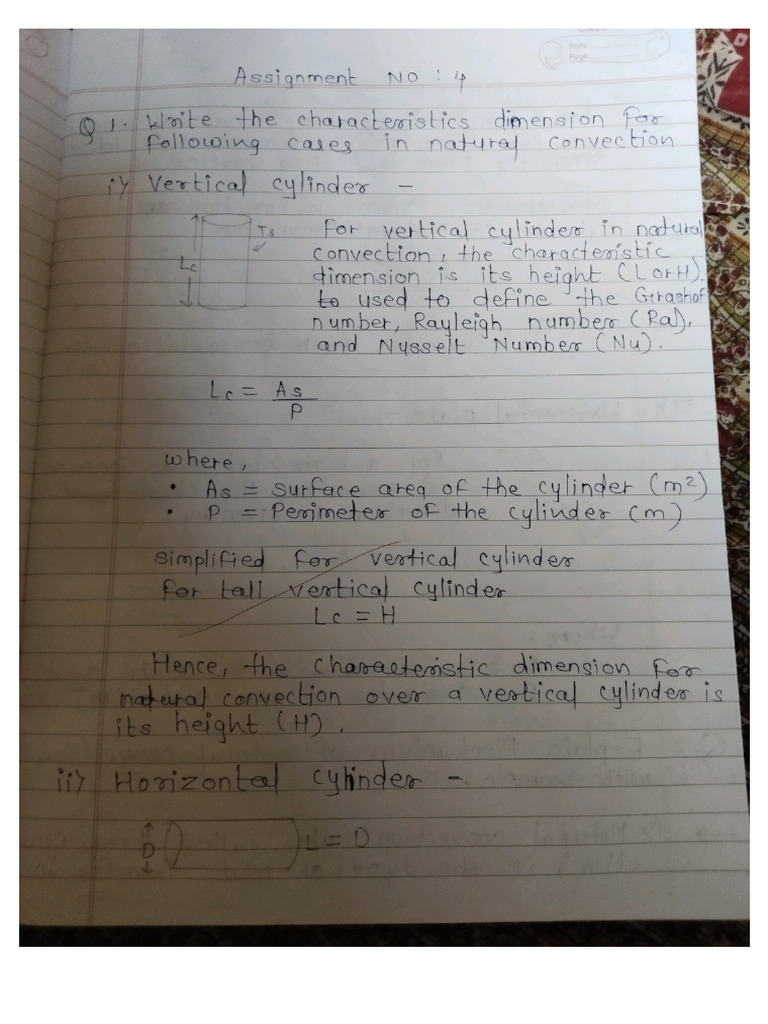 Date
Page
Assignment NO : 4
Q 1. Write the characteristics dimension for
following cases in natural convection
i) Vertical cylinder -
Ts
Lc
For vertical cylinder in natural
convection, the characteristic
dimension is its height (L or H).
to used to define the Grashof
number, Rayleigh number (Ra),
and Nusselt Number (Nu).
Lc = As
P
where,
• As = surface area of the cylinder (m2)
• P = Perimeter of the cylinder (m)
simplified for vertical cylinder
for tall vertical cylinder
Lc = H
Hence, the characteristic dimension for
natural convection over a vertical cylinder is
its height (H).
ii) Horizontal cylinder -
D
L = D